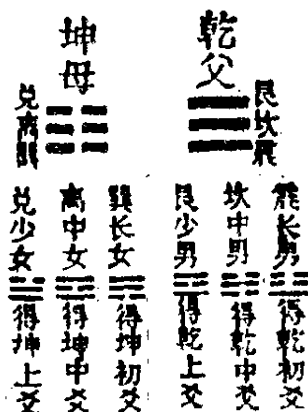 乾父
艮坎震
坤母
兑离巽
震长男
得乾初爻
坎中男
得乾中爻
艮少男
得乾上爻
巽长女
得坤初爻
离中女
得坤中爻
兑少女
得坤上爻